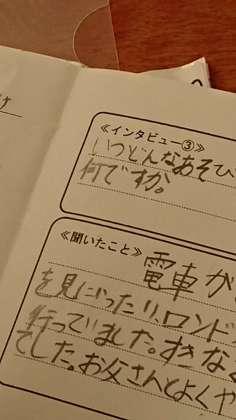 《インタビュー③》
いつどんなあそび
何ですか。
《聞いたこと》
電車が
を見にいったり、ロンド
行っていました。すきなく
でした。お父さんとよくや